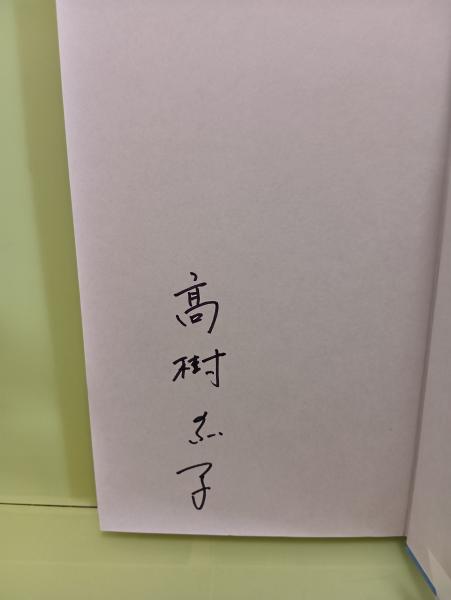 髙樹のぶ子